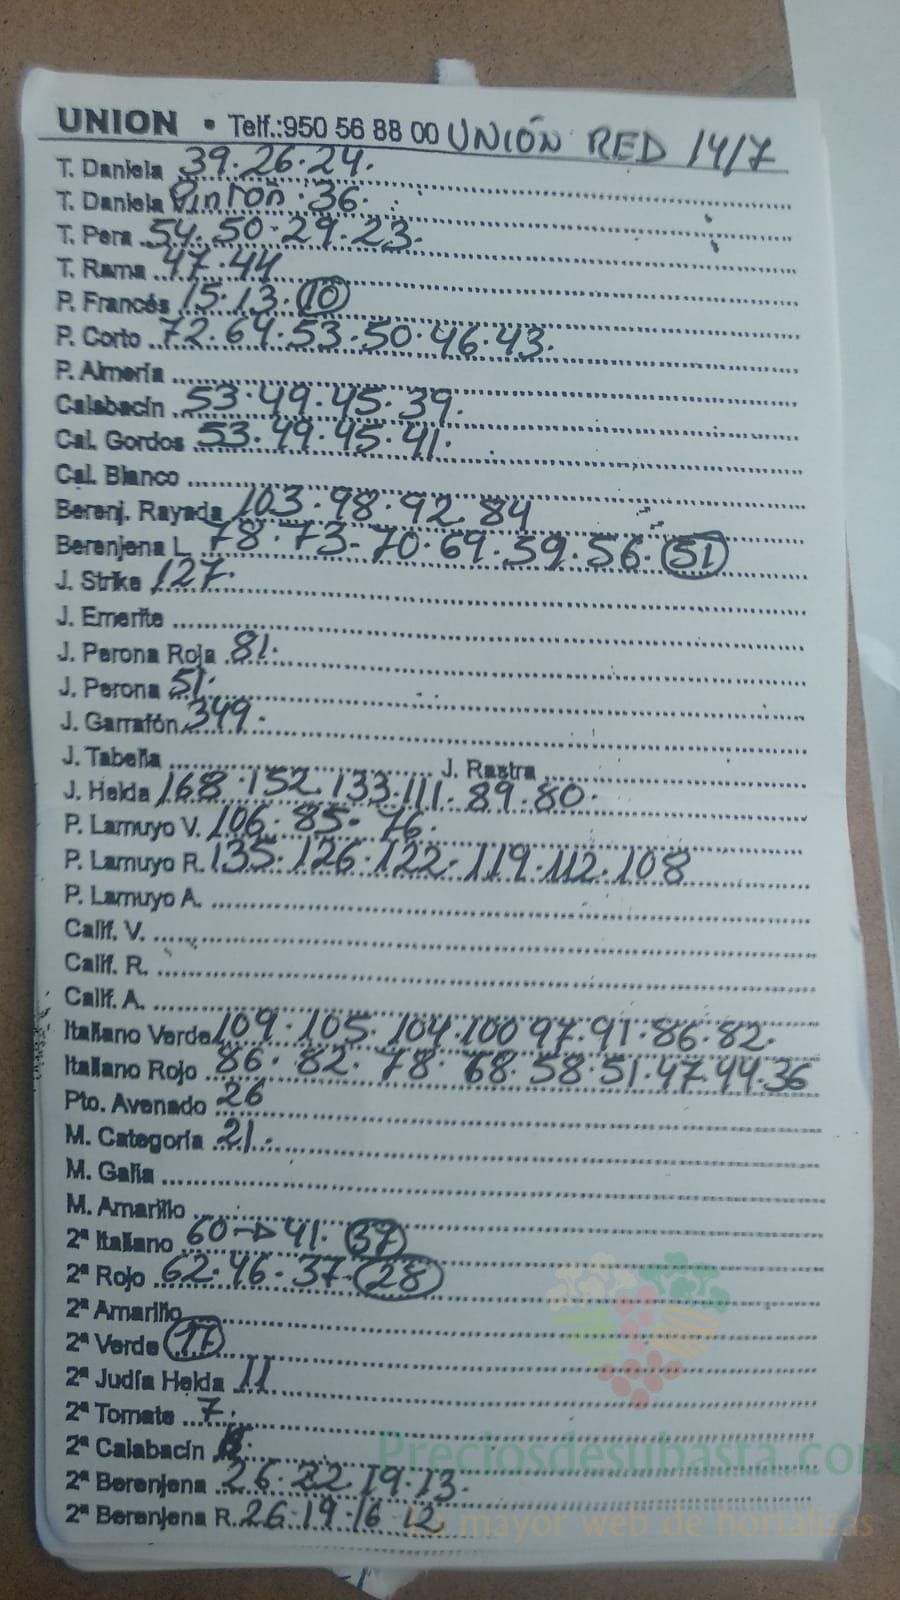 UNION • Telf.:950 56 88 00 UNIÓN RED 14/7
T. Daniela 39.26.24.
T. Daniela Pintón.36.
T. Pera 54.50.29.23.
T. Rama 47.44
P. Francés 15.13.10
P. Corto 72.64.53.50.46.43.
P. Almería
Calabacín 53.49.45.39.
Cal. Gordos 53.49.45.41.
Cal. Blanco
Berenj. Rayada 103.98.92.84
Berenjena L. 78.73-70.69.59.56.51
J. Strike 127.
J. Emerite
J. Perona Roja 81.
J. Perona 51.
J. Garrafón 349.
J. Tabella J. Rastra
J. Helda 168.152.133.111.89.80.
P. Lamuyo V. 106.85.76.
P. Lamuyo R. 135.126.122.119.112.108
P. Lamuyo A.
Calif. V.
Calif. R.
Calif. A.
Italiano Verde 109.105.104.100 97.91.86.82.
Italiano Rojo 86.82.78.68.58.51.47.44.36
Pto. Avenado 26
M. Categoría 21.
M. Galia
M. Amarillo
2ª Italiano 60→41.37
2ª Rojo 62.46.37.28
2ª Amarillo
2ª Verde 17
2ª Judía Helda 11
2ª Tomate 7.
2ª Calabacín
2ª Berenjena 26.22.19.13.
2ª Berenjena R. 26.19.16 12
Preciosdesubasta.com
La mayor web de hortalizas